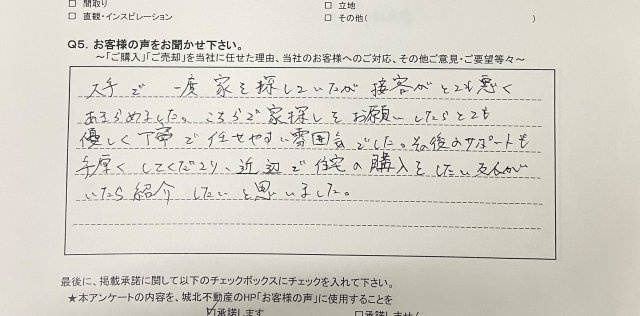 □ 間取り
□ 立地
□ 直観・インスピレーション
□ その他(
)
Q5. お客様の声をお聞かせ下さい。
~「ご購入」「ご売却」を当社に任せた理由、当社のお客様へのご対応、その他ご意見・ご要望等々~
大手で 一度 家を探していたが 接客がとても悪く
あきらめました。こちらで家探しをお願いしたらとても
優しく丁寧で任せやすい雰囲気でした。その後のサポートも
手厚くしてくださり、近辺で住宅の購入をしたい友人が
いたら紹介 したいと思いました。
最後に、掲載承諾に関して以下のチェックボックスにチェックを入れて下さい。
★本アンケートの内容を、城北不動産のHP「お客様の声」に使用することを
☑承諾します
□承諾しません